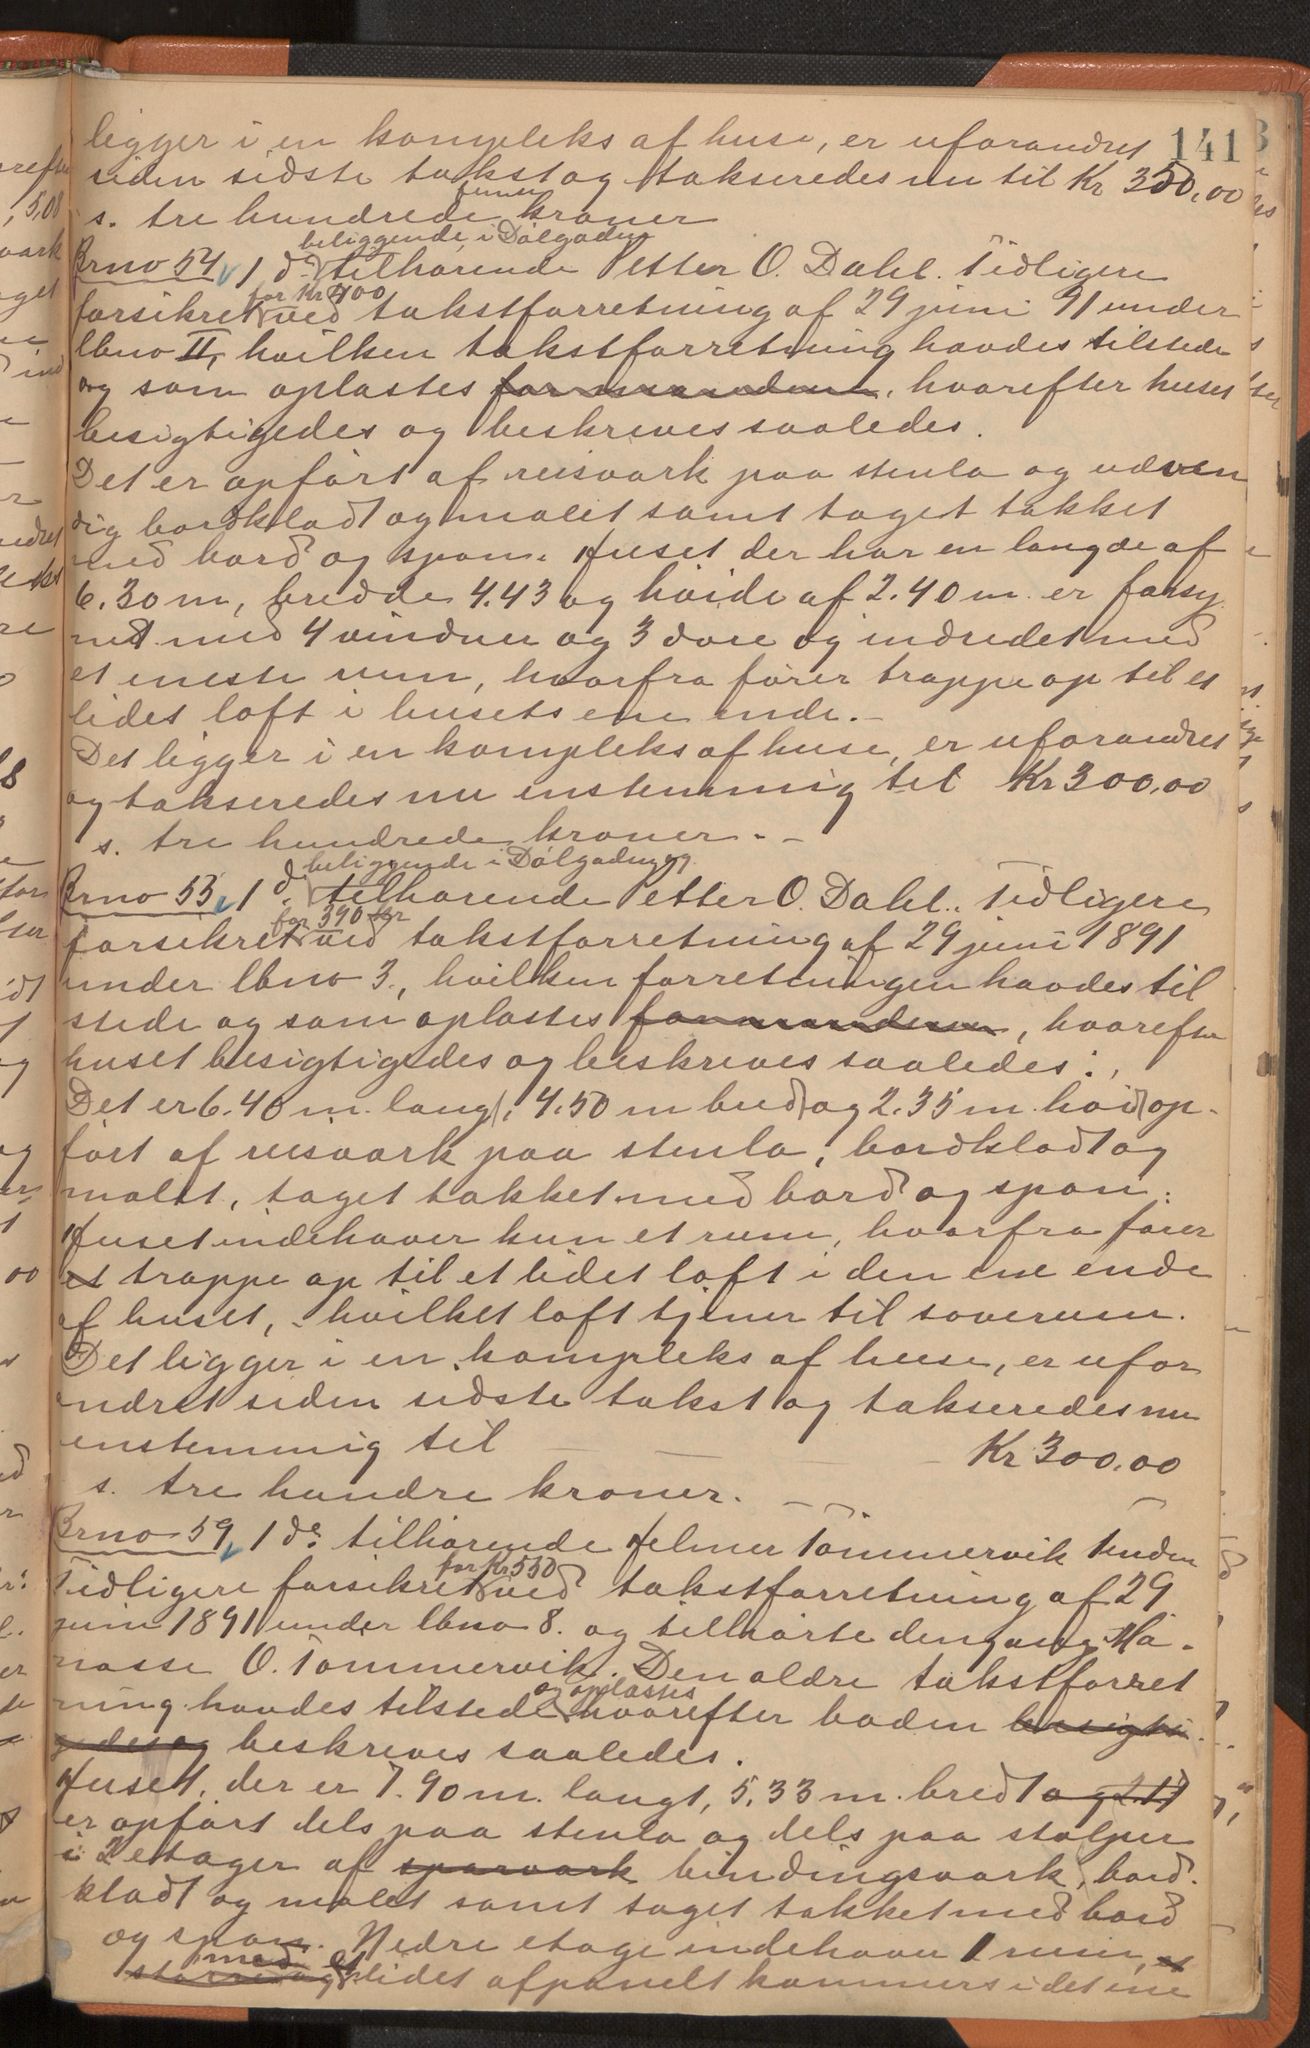 141
ligger i en kompleks af huse, er uforandret
siden sidste takst og takseredes nu til Kr 350,00
s. tre hundrede femti kroner
beliggende i Dólgaden
Brno 54, 1 do tilhørende Petter O. Dahl. Tidligere
for Kr 400
forsikret ved takstforretning af 29 juni 91 under
lbno II, hvilken takstforretning havdes tilstede
og som oplæstes for mændene, hvorefter huset
besigtigedes og beskreves saaledes.
Det er opført af reisværk paa stenla og udven
dig bordklædt og malet samt taget tækket
med bord og spon. Huset der har en længde af
6.30 m, bredde 4.43 og høide af 2.40 m. er forsy
net med 4 vinduer og 3 døre og indredet med
et eneste rum, hvorfra fører trappe op til et
lidet loft i husets ene ende.-
Det ligger i en kompleks af huse, er uforandret
og takseredes nu enstemmig til Kr 300,00
s. tre hundrede kroner. -
beliggende i Dólgaden
Brno 55, 1 do tilhørende Petter O. Dahl. Tidligere
for 390 kr
forsikret ved takstforretning af 29 juni 1891
under lbno 3., hvilken forretningen havdes til
stede og som oplæstes for mændene, hvorefter
huset besigtigedes og beskreves saaledes:
Det er 6.40 m. lang, 4.50 m bred og 2.35 m. høid op-
ført af reisværk paa stenla, bordklædt og
malet, taget tækket med bord og spon.
Huset indehaver kun et rum, hvorfra fører
et trappe op til et lidet loft i den ene ende
af huset, - hvilket loft tjener til soverum.
Det ligger i en kompleks af huse, er ufor
andret siden sidste takst og takseredes nu
enstemmig til — — — Kr 300.00
s. tre hundre kroner. —
Brno 59, 1 do tilhørende Helmer Tømmervik Tenden
for Kr 550
Tidligere forsikret ved takstforretning af 29
juni 1891 under lbno 8. og tilhørte dengang Ma-
nasse O. Tømmervik. Den ældre takstforret
og oplæstes
ning havdes tilstede hvorefter boden besigti
gedes og beskreves saaledes.
Huset, der er 7.90 m. langt, 5.33 m. bredt og 2.17
er opført dels paa stenla og dels paa stolper
i 2 etager af sparværk bindingsværk, bord-
klædt og malet samt taget tækket med bord
og spon. Nedre etage indehaver 1 rum, et
med et
større og lidet afpanelt kammers i det ene